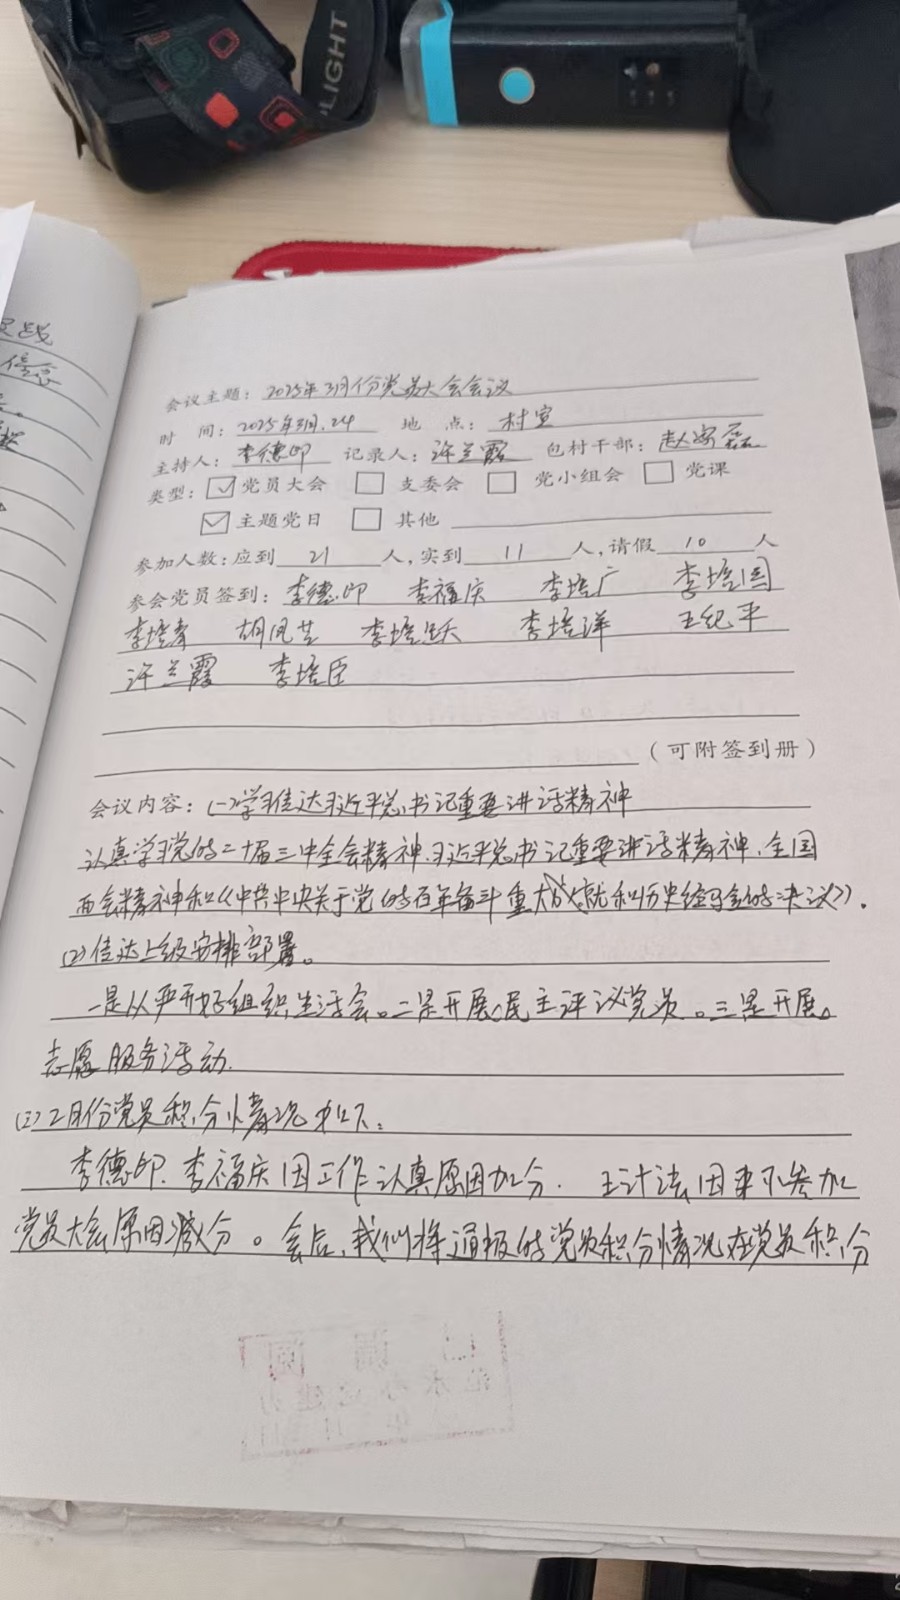 LIGHT
实践
信念
会议主题：2025年3月份党员大会会议
时 间：2025年3月.24 地 点：村室
主持人：李德印 记录人：许兰霞 包村干部：赵磊
类型：☑党员大会 □支委会 □党小组会 □党课
☑主题党日 □其他
参加人数：应到 21 人，实到 11 人，请假 10 人
参会党员签到：李德印 李福庆 李培广 李培国
李培孝 胡凤芝 李培跃 李培洋 王纪平
许兰霞 李培臣
（可附签到册）
会议内容：(一)学习传达习近平总书记重要讲话精神
认真学习党的二十届三中全会精神.习近平总书记重要讲话精神.全国
两会精神和《中共中央关于党的百年奋斗重大成就和历史经验的决议》.
(2)传达上级安排部署。
一是从严开好组织生活会。二是开展民主评议党员。三是开展。
志愿服务活动.
(三)2月份党员积分情况如下：
李德印.李福庆因工作认真原因加分.王计法因未参加
党员大会原因减分。会后，我们将通报的党员积分情况在党员积分